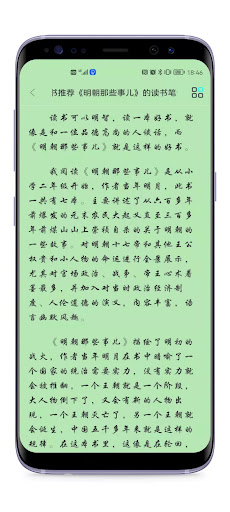 18:46
书推荐《明朝那些事儿》的读书笔
读书可以明智，读一本好书，就
像是和一位品德高尚的人谈话，而
《明朝那些事儿》就是这样的好书。
我阅读《明朝那些事儿》是从小
学二年级开始，作者当年明月，此书
一共有七本。主要讲述了从六百多年
前爆发的元末农民大起义直至三百多
年前煤山山上崇祯自杀的关于明朝的
一些故事。对明朝十七帝和其他王公
权贵和小人物的命运进行全景展示，
尤其对官场政治、战争、帝王心术着
墨最多，并加入对当时政治经济制
度、人伦道德的演义，内容丰富，语
言幽默风趣。
《明朝那些事儿》描绘了明初的
战火，作者当年明月在书中暗喻了一
个国家的统治需要实力，没有实力就
会被推翻。一个王朝就是一个阶段，
大人物倒下了，又会有新的人物出
现，一个王朝灭亡了，另一个王朝就
会诞生，中国五千多年来就是这样的
规律。在这本书里，这像是在轮回，